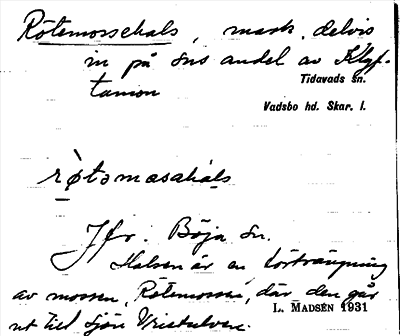 Rötemossehals, mark, delvis
in på sns andel av Klyf-
tamon
Tidavads sn.
Vadsbo hd. Skar. l.
røtəmosahals
Jfr. Böja sn.
Halsen är en förträngning
av mossen, Rötemosse, där den går
ut till sjön
L. MADSÉN 1931